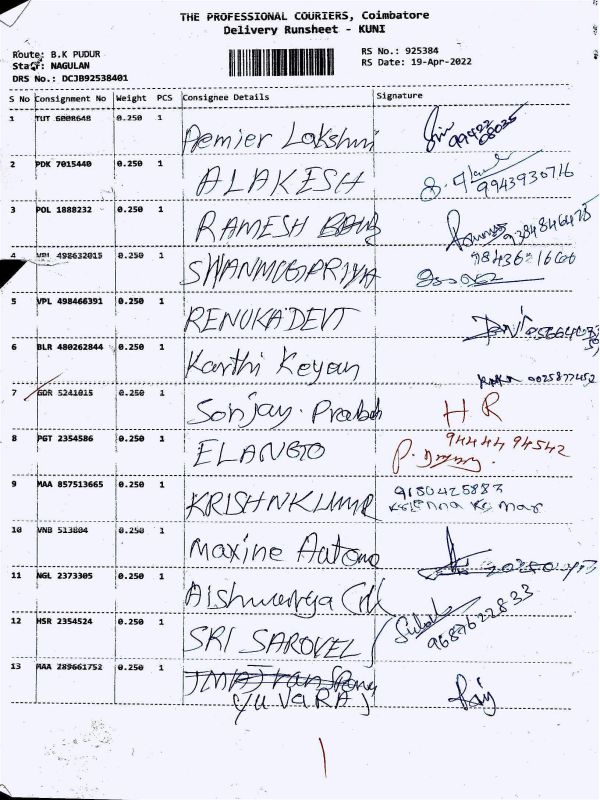 THE PROFESSIONAL COURIERS, Coimbatore
Delivery Runsheet - KUNI
Route: B.K PUDUR
Staff: NAGULAN
DRS No.: DCJB92538401
RS No.: 925384
RS Date: 19-Apr-2022
S No Consignment No Weight PCS Consignee Details Signature
1 TUT 6008648 0.250 1 Lakshmi
2 PDK 7015440 0.250 1 ALAKESH 9943930716
3 POL 1888232 0.250 1 RAMESH 9384846478
4 VPL 498632015 0.250 1 SWANMUGPRIYA
5 VPL 498466391 0.250 1 RENUKADEVI
6 BLR 480262844 0.250 1 Karthi Keyan
7 GDR 5241015 0.250 1 Sonjay. H R
8 PGT 2354586 0.250 1 ELANGO 94444 94542
9 MAA 857513665 0.250 1 KRISHNKUMAR 9150425883
10 VNB 513804 0.250 1 Maxine
11 NGL 2373305 0.250 1 Aishwarya
12 HSR 2354524 0.250 1 SRI SAROVEL 9687622833
13 MAA 289661752 0.250 1
YUVARAJ